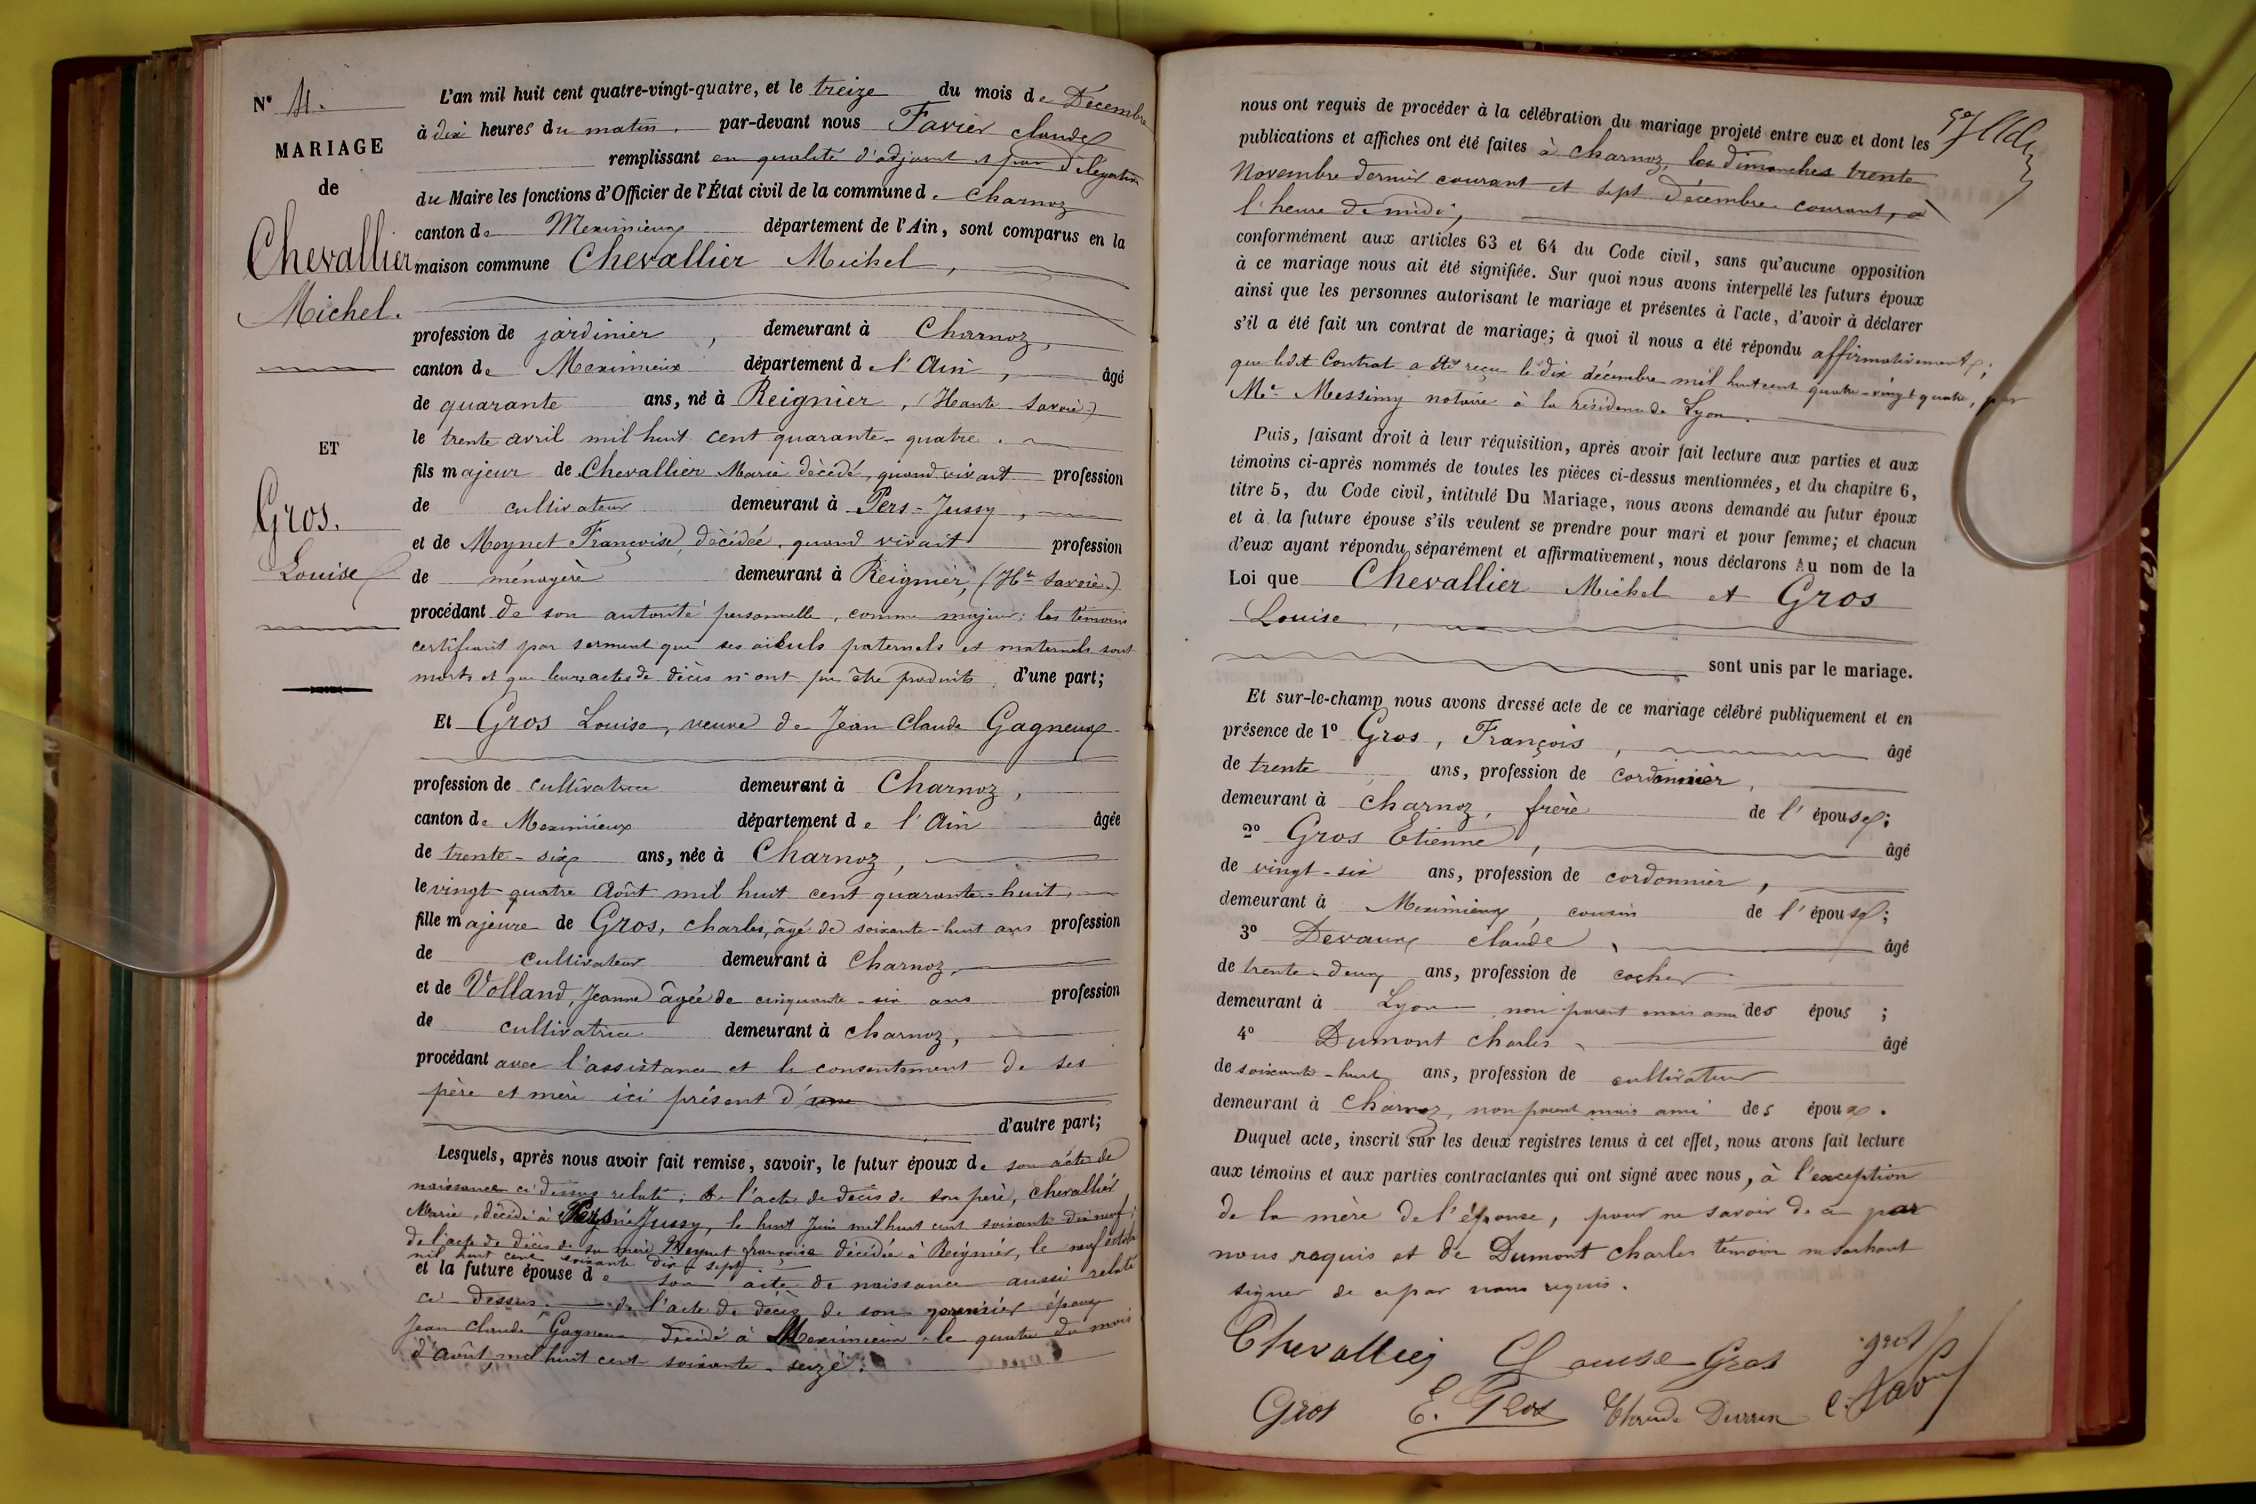 N° 4.
MARIAGE
de
Chevallier
Michel.
ET
Gros.
Louise
L'an mil huit cent quatre-vingt-quatre, et le treize du mois de Décembre
à dix heures du matin, par-devant nous Favier Claude
remplissant en qualité d'adjoint et par délégation
du Maire les fonctions d'Officier de l'État civil de la commune de Charnoz
canton de Meximieux département de l'Ain, sont comparus en la
maison commune Chevallier Michel,
profession de jardinier, demeurant à Charnoz,
canton de Meximieux département de l'Ain, âgé
de quarante ans, né à Reignier, (Haute Savoie)
le trente avril mil huit cent quarante-quatre.
fils majeur de Chevallier Marie décédé, quand vivait profession
de cultivateur demeurant à Pers-Jussy,
et de Moynet Françoise, décédée, quand vivait profession
de ménagère demeurant à Reignier, (Hte Savoie.)
procédant de son autorité personnelle, comme majeur; les témoins
certifiant par serment que ses aïeuls paternels et maternels sont
morts et que leurs actes de décès n'ont pu être produits, d'une part;
Et Gros Louise, veuve de Jean Claude Gagneux
profession de cultivatrice demeurant à Charnoz,
canton de Meximieux département de l'Ain âgée
de trente-six ans, née à Charnoz,
le vingt-quatre Août mil huit cent quarante-huit,
fille majeure de Gros, Charles, âgé de soixante-huit ans profession
de cultivateur demeurant à Charnoz,
et de Volland, Jeanne âgée de cinquante-six ans profession
de cultivatrice demeurant à Charnoz,
procédant avec l'assistance et le consentement de ses
père et mère ici présent d'une
d'autre part;
Lesquels, après nous avoir fait remise, savoir, le futur époux de son acte de
naissance ci dessus relaté; de l'acte de décès de son père, Chevallier
Marie, décédé à Pers Jussy, le huit Juin mil huit cent soixante-dix neuf;
de l'acte de décès de sa mère Moynet françoise décédée à Reignier, le neuf octobre
mil huit cent soixante dix sept;
et la future épouse de son acte de naissance aussi relaté
ci-dessus, de l'acte de décès de son premier époux
Jean Claude Gagneux décédé à Meximieux le quatre du mois
d'Août mil huit cent soixante-seize.
nous ont requis de procéder à la célébration du mariage projeté entre eux et dont les
publications et affiches ont été faites à Charnoz, les dimanches trente
Novembre dernier courant et sept Décembre courant, à
l'heure de midi,
conformément aux articles 63 et 64 du Code civil, sans qu'aucune opposition
à ce mariage nous ait été signifiée. Sur quoi nous avons interpellé les futurs époux
ainsi que les personnes autorisant le mariage et présentes à l'acte, d'avoir à déclarer
s'il a été fait un contrat de mariage; à quoi il nous a été répondu affirmativement;
que ledit Contrat a été reçu le dix décembre mil huit cent quatre-vingt quatre, par
Me Messimy notaire à la résidence de Lyon
Puis, faisant droit à leur réquisition, après avoir fait lecture aux parties et aux
témoins ci-après nommés de toutes les pièces ci-dessus mentionnées, et du chapitre 6,
titre 5, du Code civil, intitulé Du Mariage, nous avons demandé au futur époux
et à la future épouse s'ils veulent se prendre pour mari et pour femme; et chacun
d'eux ayant répondu séparément et affirmativement, nous déclarons Au nom de la
Loi que Chevallier Michel et Gros
Louise,
sont unis par le mariage.
Et sur-le-champ nous avons dressé acte de ce mariage célébré publiquement et en
présence de 1° Gros, François, âgé
de trente ans, profession de cordonnier,
demeurant à Charnoz, frère de l'épouse;
2° Gros Etienne, âgé
de vingt-six ans, profession de cordonnier,
demeurant à Meximieux, cousin de l'épouse;
3° Devaux Claude, âgé
de trente-deux ans, profession de cocher
demeurant à Lyon non parent mais ami des épous ;
4° Dumont Charles, âgé
de soixante-huit ans, profession de cultivateur
demeurant à Charnoz, non parent mais ami des époux.
Duquel acte, inscrit sur les deux registres tenus à cet effet, nous avons fait lecture
aux témoins et aux parties contractantes qui ont signé avec nous, à l'exception
de la mère de l'épouse, pour ne savoir de ce par
nous requis et de Dumont Charles témoin ne sachant
signer de ce par nous requis.
Chevallier Louise Gros gros
Gros E. Gros C. Favier